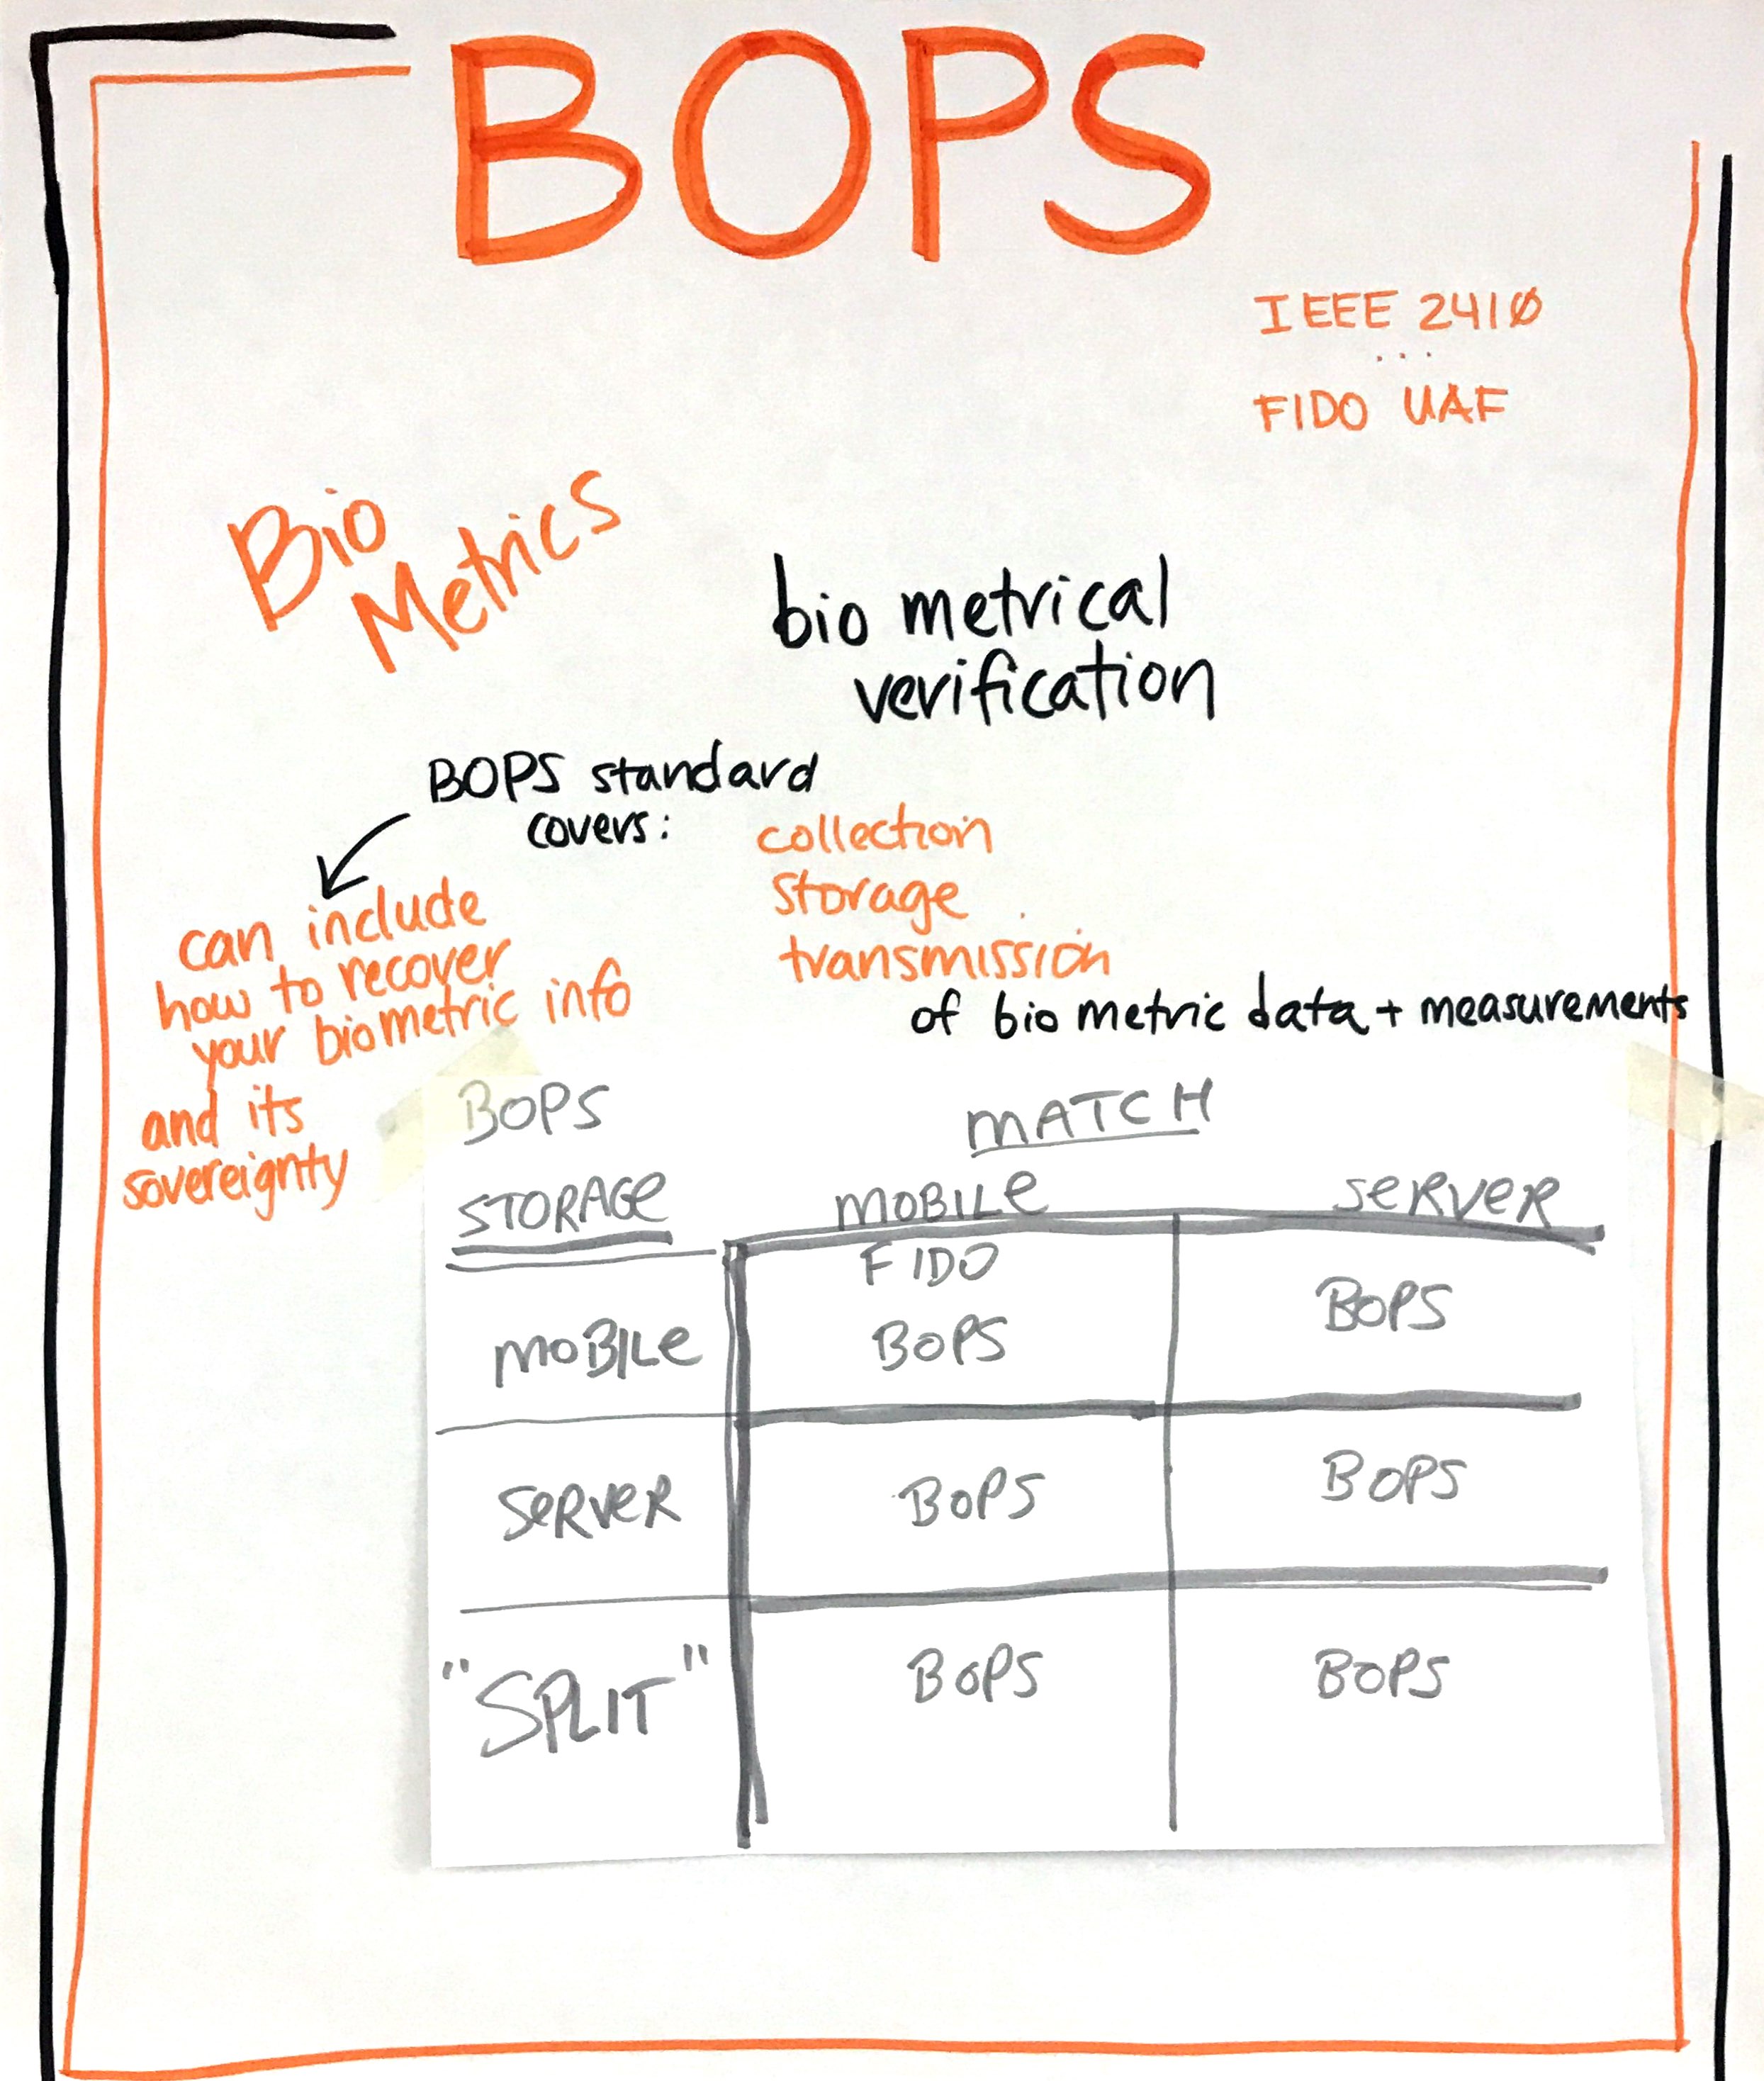 BOPS
IEEE 2410
...
FIDO UAF
Bio
Metrics
bio metrical
verification
BOPS standard
covers:
collection
storage
transmission
of bio metric data + measurements
can include
how to recover
your biometric info
and its
sovereignty
BOPS MATCH
STORAGE MOBILE SERVER
FIDO
MOBILE BOPS BOPS
SERVER BOPS BOPS
"SPLIT" BOPS BOPS